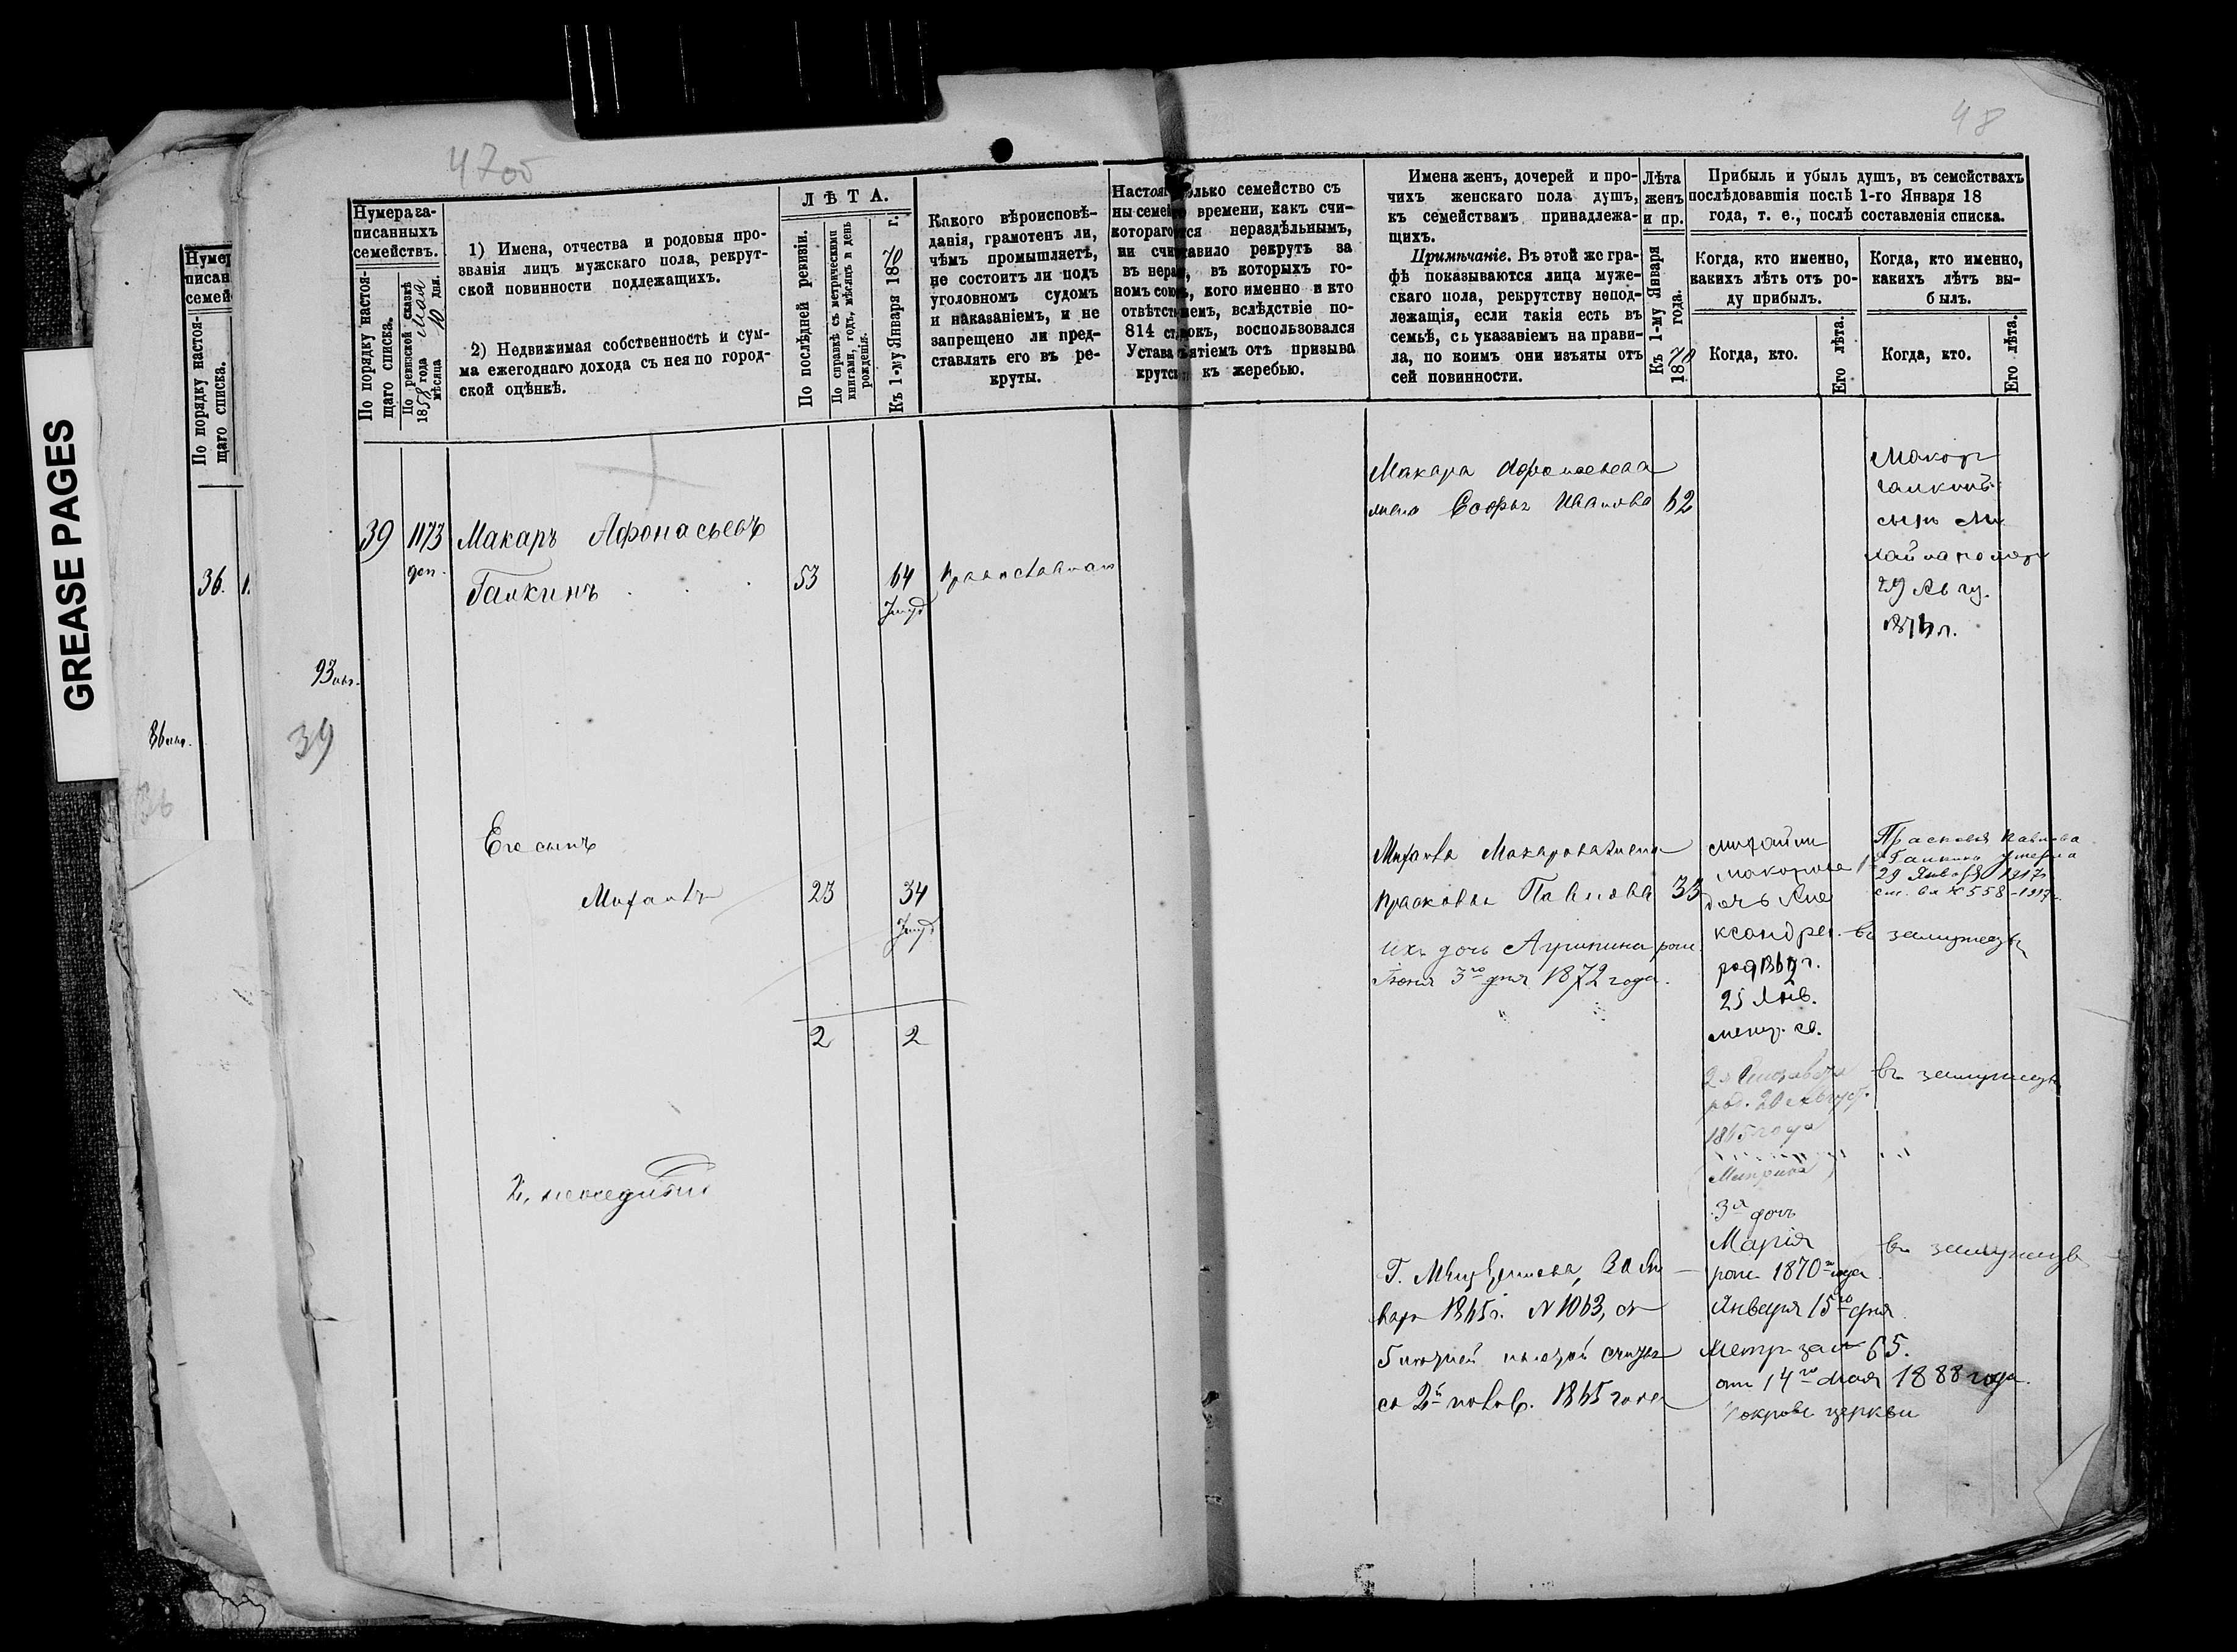 GREASE PAGES
48
47 об
Нумера за-
писанныхъ
семействъ.
По порядку настоя-
щаго списка.
По ревизской сказкѣ
1858 года мая
мѣсяца 10 дня.
1) Имена, отчества и родовыя про-
званія лицъ мужскаго пола, рекрут-
ской повинности подлежащихъ.
2) Недвижимая собственность и сум-
ма ежегоднаго дохода съ нея по город-
ской оцѣнкѣ.
ЛѢТА.
По послѣдней ревизіи.
По справкѣ съ метрическими
книгами, годъ, мѣсяцъ и день
рожденія.
Къ 1-му Января 1870 г.
Какого вѣроисповѣ-
данія, грамотенъ ли,
чѣмъ промышляетъ,
не состоитъ ли подъ
уголовномъ судомъ
и наказаніемъ, и не
запрещено ли пред-
ставлять его въ ре-
круты.
олько семейство съ
времени, какъ счи-
тся нераздѣльнымъ,
тавило рекрутъ за
въ которыхъ го-
кого именно и кто
вслѣдствіе по-
воспользовался
ятіемъ отъ призыва
къ жеребью.
Имена женъ, дочерей и про-
чихъ женскаго пола душъ,
къ семействамъ принадлежа-
щихъ.
Примѣчаніе. Въ этой же гра-
фѣ показываются лица муже-
скаго пола, рекрутству непод-
лежащія, если такія есть въ
семьѣ, съ указаніемъ на прави-
ла, по коимъ они изъяты отъ
сей повинности.
Лѣта
женъ
и пр.
Къ 1-му Января
1870 года.
Прибыль и убыль душъ, въ семействахъ
послѣдовавшія послѣ 1-го Января 18
года, т. е., послѣ составленія списка.
Когда, кто именно,
какихъ лѣтъ отъ ро-
ду прибылъ.
Когда, кто.
Его лѣта.
Когда, кто именно,
какихъ лѣтъ вы-
былъ.
Когда, кто.
Его лѣта.
36.
39 1173 Макаръ Афонасьевъ
Галкинъ 53 64
39
Его сынъ
Михаилъ 23 34
2 2
Макара Афонасьева
жена Софья Иванова 62
Макаръ
Галкинъ
29 Авгу.
Михаила Макарова жена
Прасковья Павлова 33
ихъ дочь Агрипина рож.
Іюня 3го дня 1872 года.
Михаила
Макарова
дочь Але
ксандра
25 Янв.
метр. св.
Прасковья Павлова
Галкина умерла
29 Января 1917г
558-1917г.
въ замужествѣ
2я Елизавета
род. 20 Август.
1865 года
въ замужествѣ
3я дочь
Марія
рож. 1870го года
Января 15го дня
Метр за № 65.
отъ 14го Мая 1888 года.
Покровс церкви
въ замужествѣ
1865г. №1063, от
со 2й полов. 1865 года